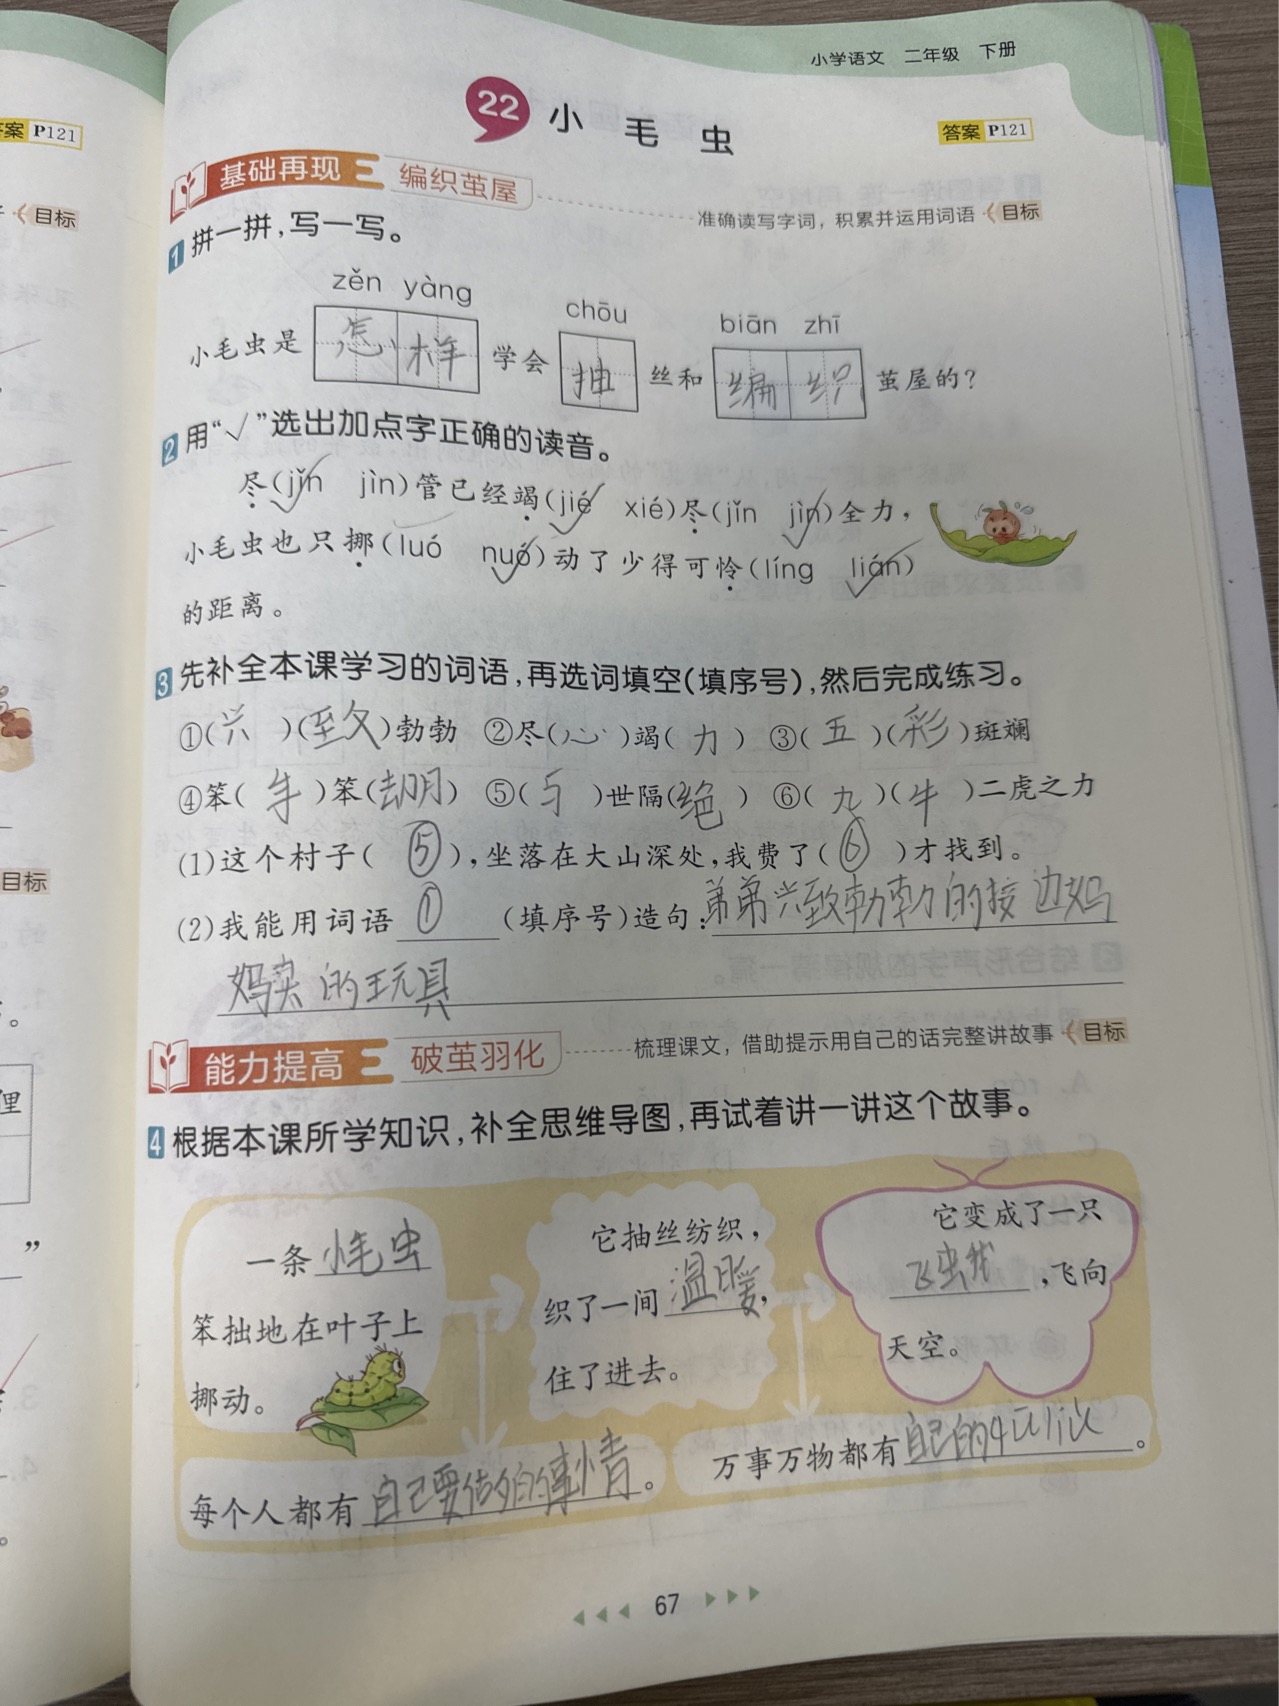 小学语文 二年级 下册
22 小毛虫
答案 P121
答案 P121
基础再现 编织茧屋
准确读写字词，积累并运用词语 目标
目标
1 拼一拼，写一写。
zěn yàng chōu biān zhī
小毛虫是 怎样 学会 抽 丝和 编织 茧屋的？
2 用“√”选出加点字正确的读音。
尽(jǐn√ jìn)管已经竭(jié√ xié)尽(jǐn jìn√)全力，
小毛虫也只挪(luó nuó√)动了少得可怜(líng lián√)
的距离。
3 先补全本课学习的词语，再选词填空(填序号)，然后完成练习。
①(兴)(致)勃勃 ②尽(心)竭(力) ③(五)(彩)斑斓
目标
④笨(手)笨(脚) ⑤(与)世隔(绝) ⑥(九)(牛)二虎之力
(1)这个村子(⑤)，坐落在大山深处，我费了(⑥)才找到。
(2)我能用词语 ① (填序号)造句：弟弟兴致勃勃的接边妈
妈卖的玩具
能力提高 破茧羽化
梳理课文，借助提示用自己的话完整讲故事 目标
4 根据本课所学知识，补全思维导图，再试着讲一讲这个故事。
一条小毛虫
笨拙地在叶子上
挪动。
它抽丝纺织，
织了一间温暖，
住了进去。
它变成了一只
飞虫我，飞向
天空。
每个人都有自己要做的事情。
万事万物都有自己的。
67